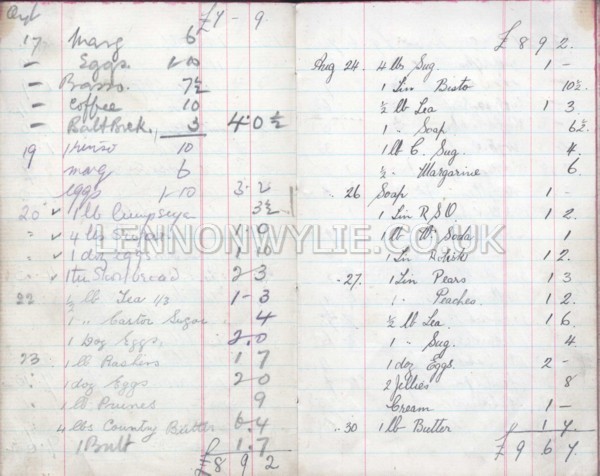 Aug £7 - 9
17 Marg 6
- Eggs. 1-10
- Brasso. 7½
- Coffee 10
- Balt Pork. 3 4.0½
19 1 rinso 10
marg 6
eggs 1-10 3.2
20 1 lb lump sugar 3½
" 4 lb
" 1 doz Eggs 1.10
" Shortbread 2 3
22 ½ lb Tea 1/3 1-3
1 " Castor Sugar 4
1 Doz Eggs. 2.0
23 1 lb Rashers 1 7
" 1 doz Eggs 2 0
" 1 lb Prunes 9
4 lbs Country Butter 6.4
1 Butt 1.7
£8 9 2
£8 9 2.
Aug 24. 4 lbs Sug. 1 -
1 Tin Bisto 10½.
½ lb Tea 1 3.
1 " Soap 6½.
1 lb C. Sug. 4.
½ " Margarine 6
" 26 Soap 1 -
1 Tin R.S.O. 1 2.
1 lb W. Soda 1
1 Tin 1 2.
" 27. 1 Tin Pears 1 3
1 " Peaches. 1 2.
½ lb Tea. 1 6.
1 " Sug. 4
1 doz Eggs. 2 -
2 Jellies 8
Cream 1 -
" 30 1 lb Butter 1 7.
£9 6 7.
LENNONWYLIE.CO.UK